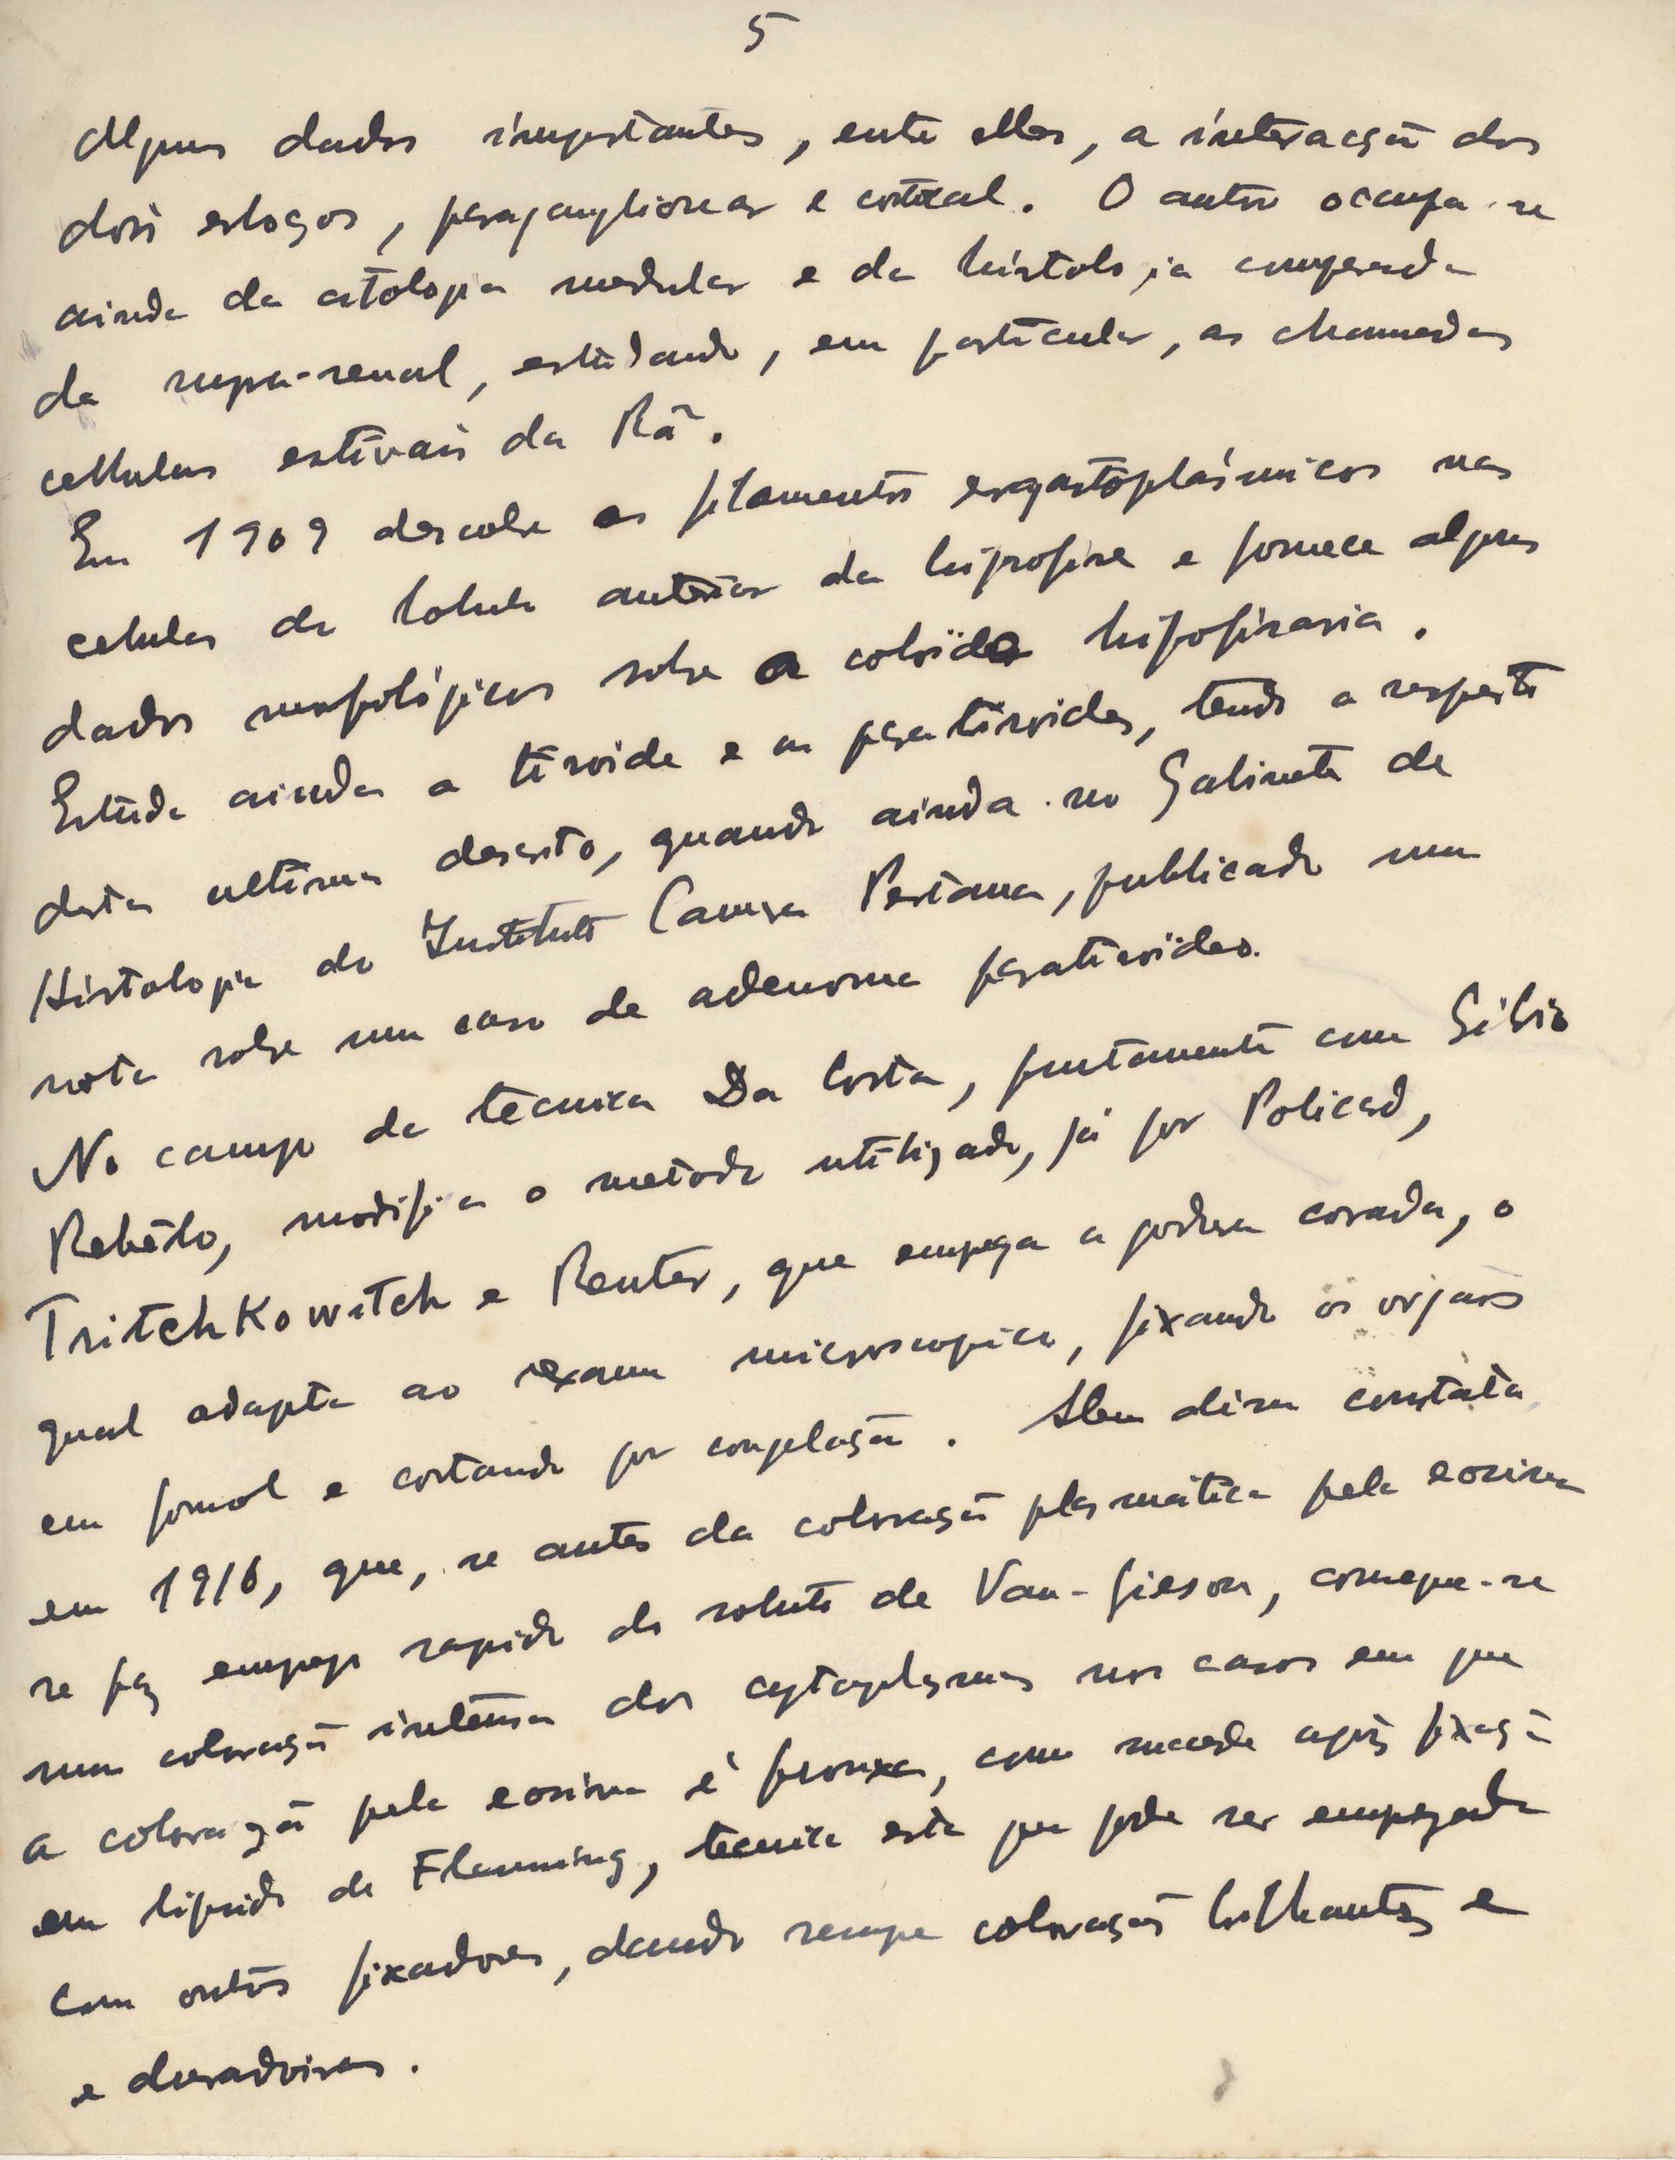 5
alguns dados importantes, entre elles, a interacção dos
dois esboços, paraganglionar e cortical. O autor occupa-se
ainda da citologia medular e da histologia comparada
da supra-renal, estudando, em particular, as chamadas
cellulas estivais da Rã.
Em 1909 descobre os filamentos ergastoplásmicos nas
celulas do lobulo anterior da hipofise e fornece alguns
dados morfológicos sobre a coloide hipofisaria.
Estuda ainda a tiroide e as paratiroides, tendo a respeito
desta ultima descrito, quando ainda no Gabinete de
Histologia do Instituto Camara Pestana, publicado uma
nota sobre um caso de adenoma paratiroideo.
No campo da tecnica Da Costa, juntamente com Silvio
Rebêlo, modifica o metodo utilizado, já por Policard,
Tritchkowitch e Renter, que emprega a potassa corada, o
qual adapta ao exame microscopico, fixando os orgãos
em formol e cortando por congelação. Alem disso constata
em 1916, que, se antes da coloração plasmática pela eosina
se faz emprego rapido do soluto de Van-Gieson, consegue-se
uma coloração intensa dos cytoplasmas nos casos em que
a coloração pela eosina é frouxa, como succede após fixaçã
em liquido de Flemming, tecnica esta que pode ser empregada
com outros fixadores, dando sempre colorações brilhantes e
e duradoiras.